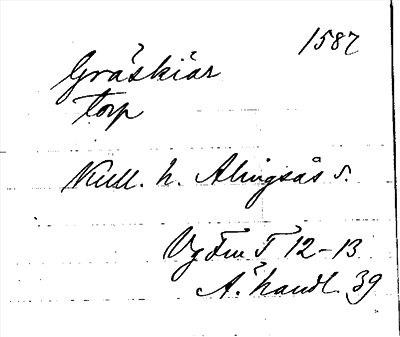 1587
Gräskiär
torp
Kull. h. Alingsås s.
Vg Fm I 12-13
Ä. handl. 39